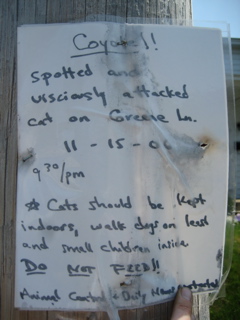 Coyote!!
Spotted and
visciously attacked
cat on Greene Ln.
11 - 15 - 06
9:30/pm
* Cats should be kept
indoors, walk dogs on leash
and small children inside
DO NOT FEED!!
Animal Control & Daily News contacted